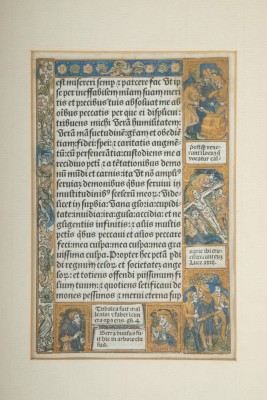 est misereri semp̄ & parcere fac vt ip
se per ineffabilem miam suam meri
tis et precibus tuis absoluat me ab
oĩbus peccatis per que ei displicui:
tribuens michi Verā humilitatem:
Verā māsuetudinē: grām et obediē
tiam: fidei: spei: et caritatis augmē-
tū: & perseuerātia: custodiens me a
recidiuo petī & a tētationibus demo
nū mūdi et carnis: ita vt nō ampli9
seruiaz demonibus q̄bus seruiui in
multitudinib9 scelerū meoꝝ: Vide-
licet in supbia: Vana gloria: cupidi-
tate: inuidia: ira: gula: accidia: et ne
gligentiis infinitis: & aliis multis
petis q̄bus peccaui et alios peccare
feci: mea culpa: mea culpa: mea gra
uissima culpa. Propter hec petā pdi
di regnū celoꝝ et societatez ange
loꝝ: et totiens offendi piissimum fi
lium tuum: et quotiens letificaui de
mones pessimos & merui eterna sup
vocatur cal-
Luce xxiii.
fit hic in arbore